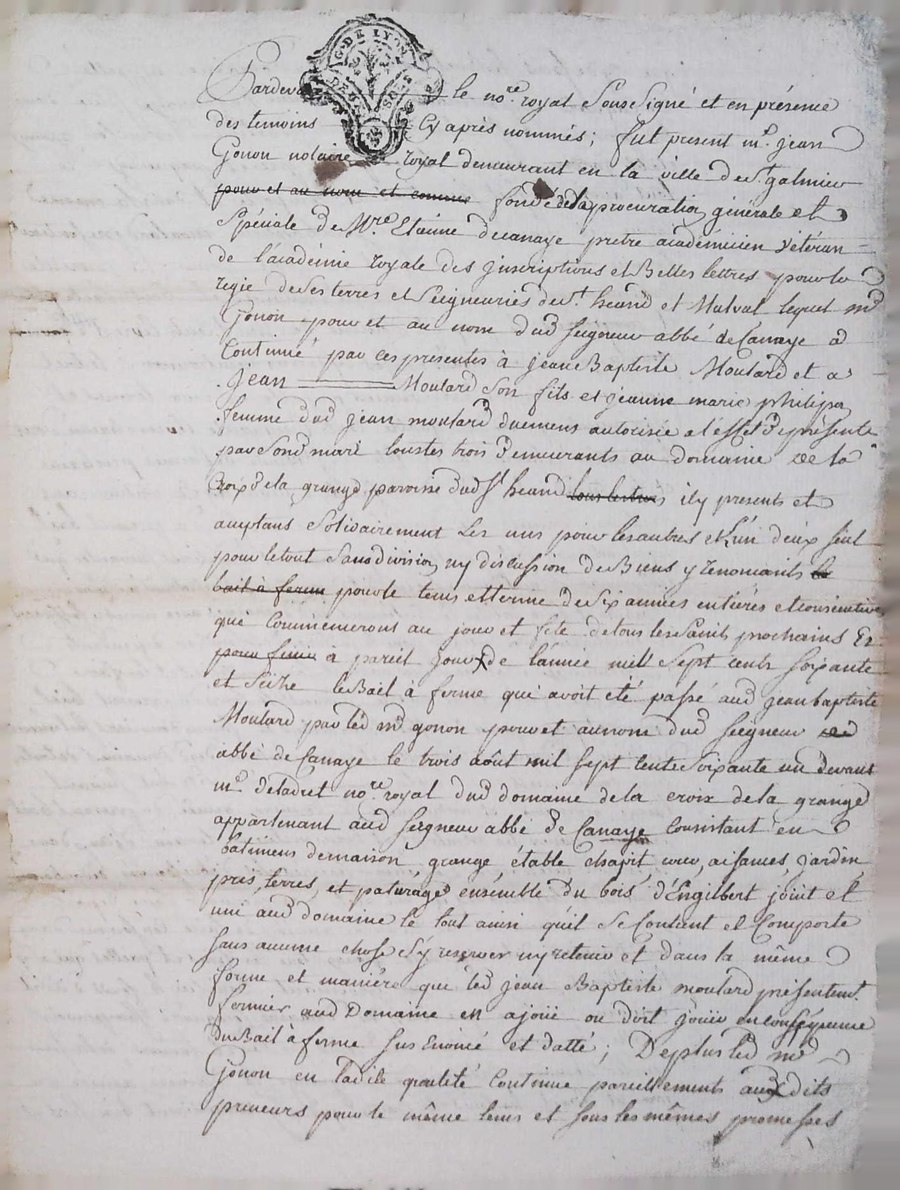 G. DE LYON
DEUX SOLS
Pardevant le no.re royal Sous Signé et en présence
des temoins Cy après nommés; fut present m.e Jean
Gonon notaire royal demeurant en la ville de St. galmier
pour et au nom et comme fondé de la procuration générale et
Spéciale de M.re Etienne decanaye pretre académicien vétéran
de l'académie royale des Inscriptions et Belles lettres pour la
regie de Ses terres et Seigneuries de St. heand et Malval lequel m.e
Gonon pour et au nom dud Seigneur abbé de Canaye a
Continué par ces presentes à Jean Baptiste Moulard et a
Jean Moulard Son fils et jeanne marie philipon
femme dud Jean moulard duemens autorisée a l'effet des présentes
par Sond mari tous trois demeurants au domaine de la
Croix de la grange paroisse dud St. heand icy presents et
acceptans Solidairement Les uns pour les autres et L'un deux Seul
pour le tout Sans division ny discussion de Biens y renoncants le
bail à ferme pour le tems et terme de Six années entières et consécutives
qui Commenceront au jour et fête de tous les Saints prochains Et
pour finir à pareil jour de l'année mil Sept cents Soixante
et Seize le Bail à ferme qui avoit été passé aud Jean baptiste
Moulard par led m.e gonon pour et au nom dud Seigneur
abbé de Canaye le trois août mil Sept cents Soixante un devant
m.e no.re royal dud domaine de la croix de la grange
appartenant aud Seigneur abbé de Canaye Consistant en
bâtimens de maison grange étable chapit cour, aisances, Jardin
prés, terres, et paturages ensemble du bois d'Engilbert joint et
uni aud domaine le tout ainsi qu'il Se Contient et Comporte
Sans aucune chose S'y reserver ny retenir et dans la même
forme et manière que led Jean Baptiste moulard présentem.t
fermier aud Domaine en a joüi ou dût joüir en conséquence
du Bail à ferme Sus Enoncé et datté; De plus led m.e
Gonon en ladite qualité Continue pareillement auxdits
preneurs pour le même tems et Sous les mêmes promesses